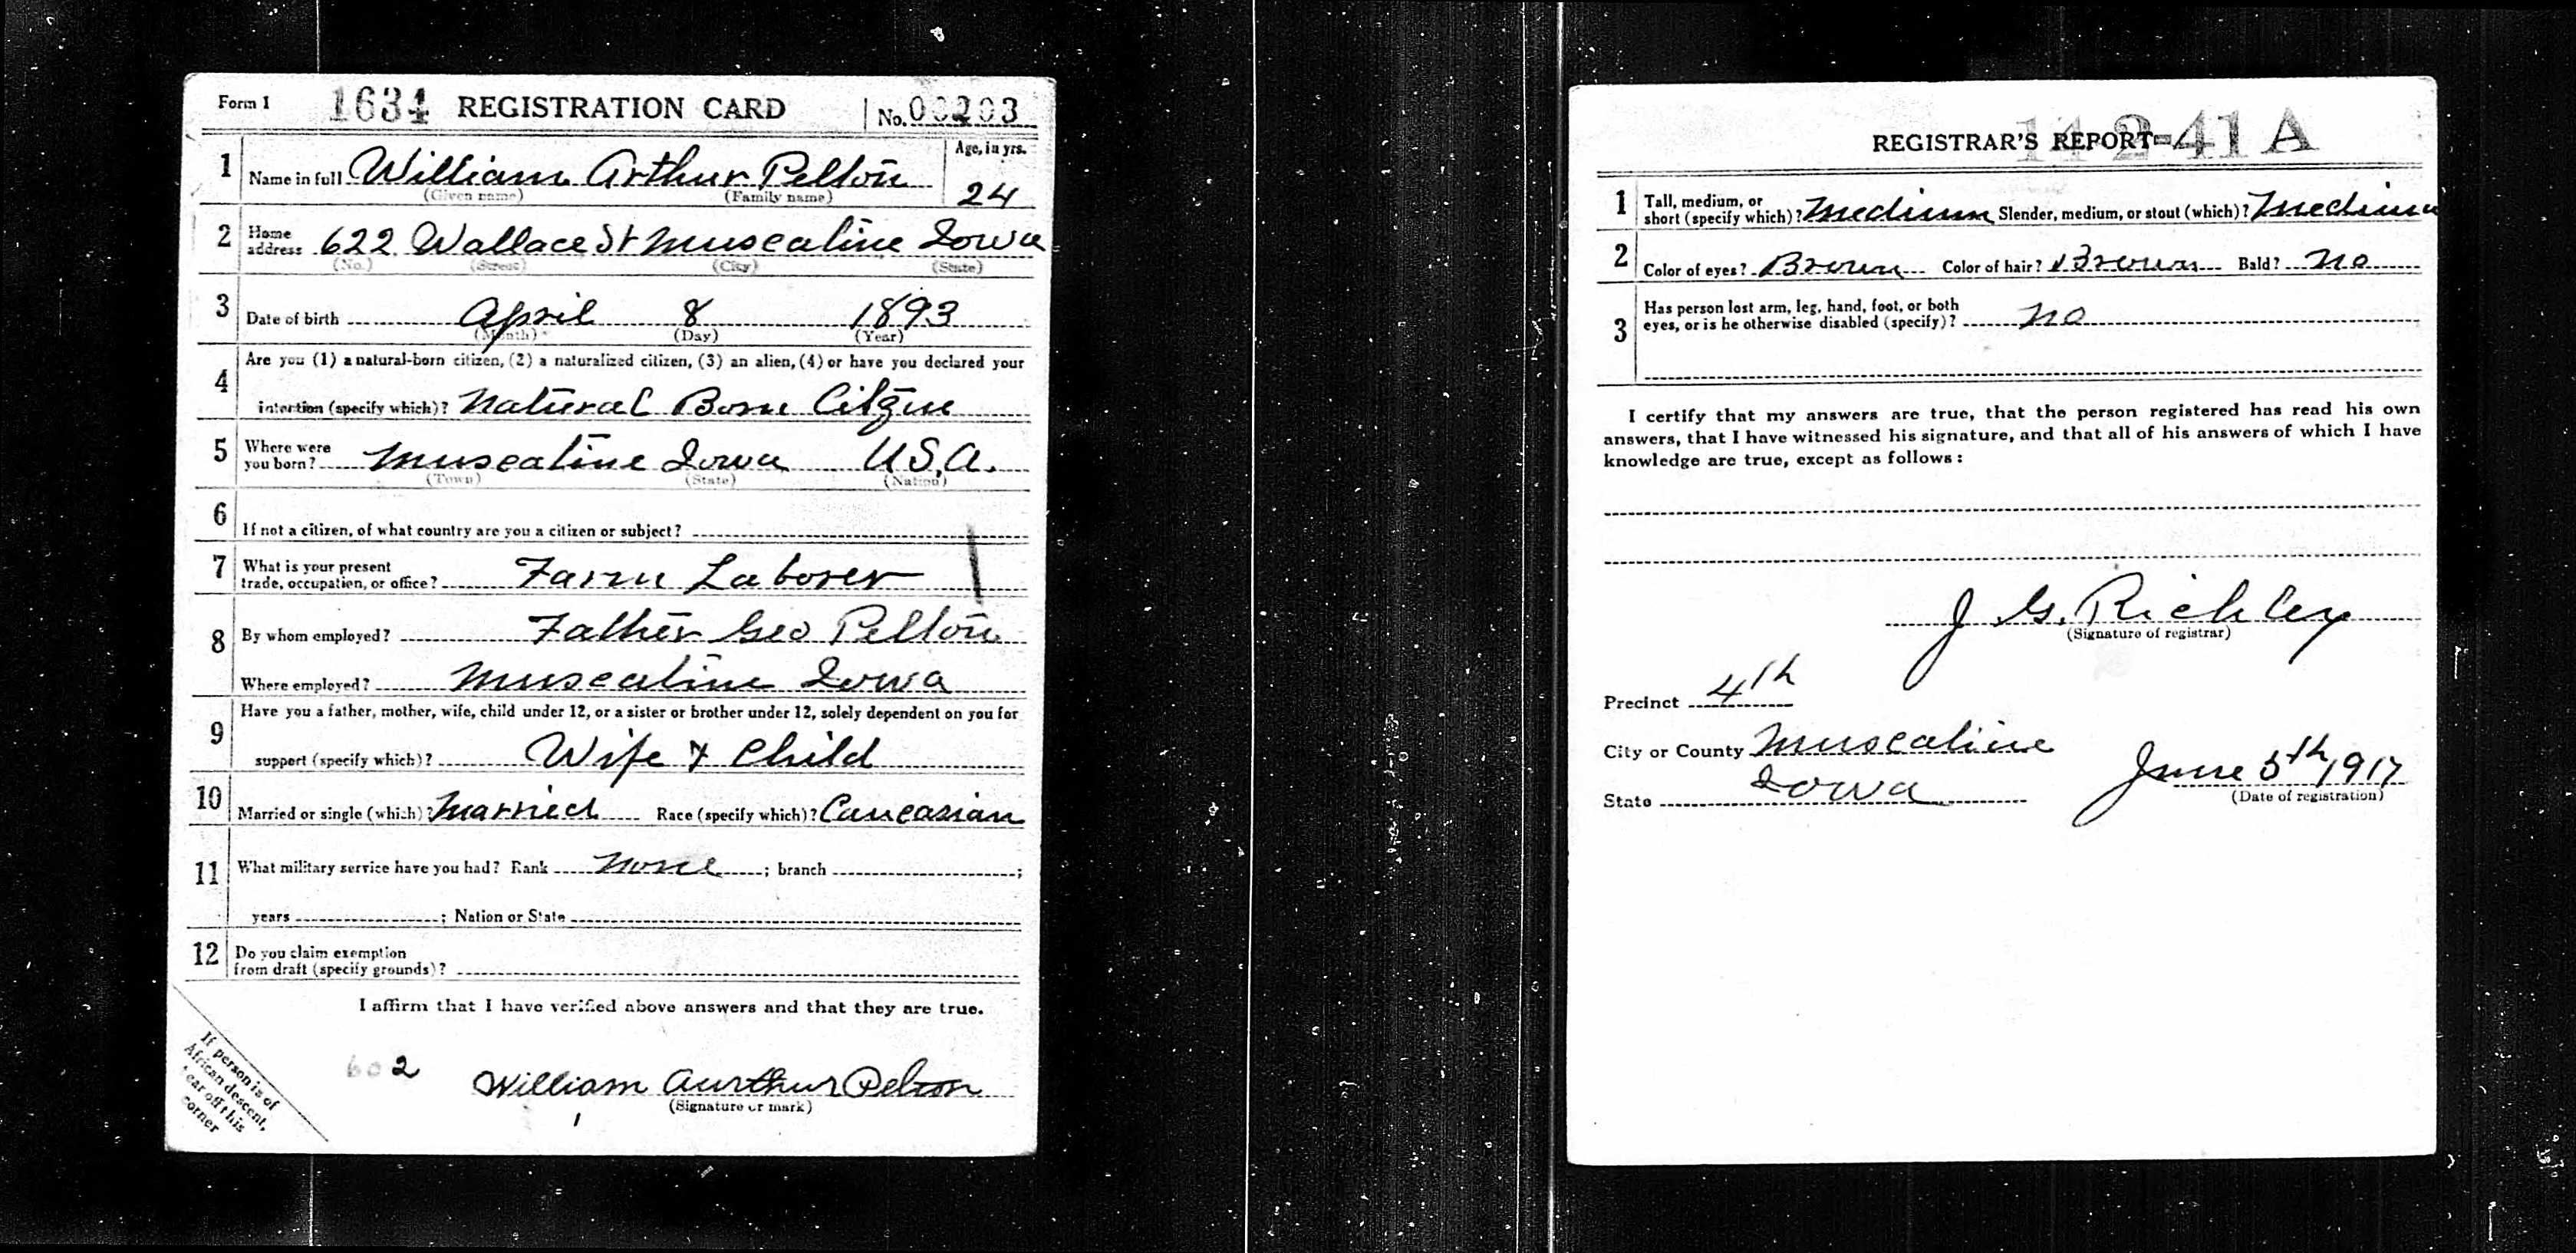 Form 1 1634 REGISTRATION CARD No. 00203
1 Name in full William Arthur Pelton Age, in yrs. 24
(Given name) (Family name)
2 Home address 622 Wallace St Muscatine Iowa
(No.) (Street) (City) (State)
3 Date of birth April 8 1893
(Month) (Day) (Year)
4 Are you (1) a natural-born citizen, (2) a naturalized citizen, (3) an alien, (4) or have you declared your
intention (specify which)? Natural Born Citizen
5 Where were you born? Muscatine Iowa U.S.A.
(Town) (State) (Nation)
6 If not a citizen, of what country are you a citizen or subject?
7 What is your present
trade, occupation, or office? Farm Laborer
8 By whom employed? Father Geo Pelton
Where employed? Muscatine Iowa
9 Have you a father, mother, wife, child under 12, or a sister or brother under 12, solely dependent on you for
support (specify which)? Wife & Child
10 Married or single (which)? Married Race (specify which)? Caucasian
11 What military service have you had? Rank None ; branch ;
years ; Nation or State
12 Do you claim exemption
from draft (specify grounds)?
I affirm that I have verified above answers and that they are true.
602
William Aurthur Pelton
(Signature or mark)
If person is of
African descent,
tear off this
corner
REGISTRAR'S REPORT 14-2-41 A
1 Tall, medium, or
short (specify which)? Medium Slender, medium, or stout (which)? Medium
2 Color of eyes? Brown Color of hair? Brown Bald? No
3 Has person lost arm, leg, hand, foot, or both
eyes, or is he otherwise disabled (specify)? No
I certify that my answers are true, that the person registered has read his own
answers, that I have witnessed his signature, and that all of his answers of which I have
knowledge are true, except as follows:
J. G. Richley
(Signature of registrar)
Precinct 4th
City or County Muscatine
State Iowa June 5th, 1917
(Date of registration)